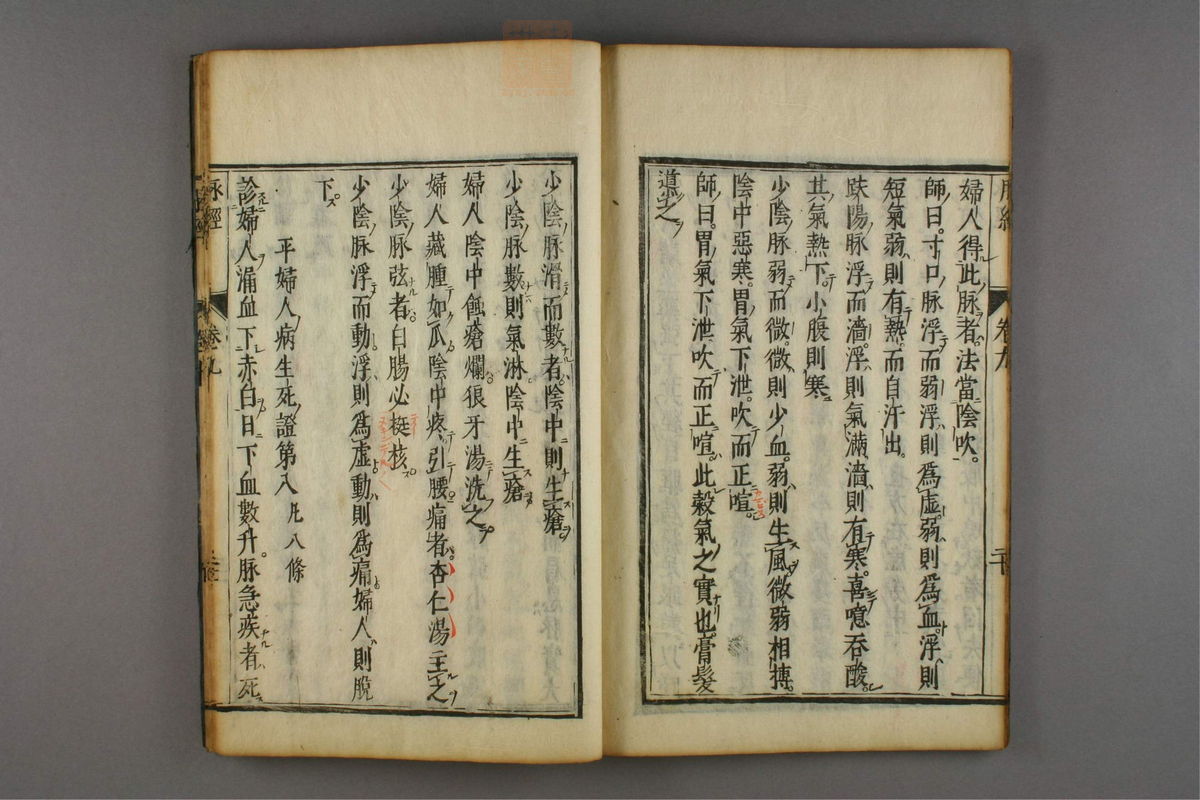 婦人得此脉者。法當陰吹。
師曰。寸口脉浮而弱。浮則爲虛。弱則爲血。浮則
短氣。弱則有熱。而自汗出。
趺陽脉浮而濇。浮則氣滿。濇則有寒。喜噫吞酸。
其氣熱下。小腹則寒
少陰脉弱而微。微則少血。弱則生風。微弱相搏。
陰中惡寒。胃氣下泄。吹而正喧。
師曰。胃氣下泄。吹而正喧。此穀氣之實也。膏髮
導之
少陰脉滑而數者。陰中則生瘡
少陰脉數則氣淋。陰中生瘡
婦人陰中蝕瘡爛。狼牙湯洗之
婦人藏腫如瓜。陰中疼引腰痛者。杏仁湯主之
少陰脉弦者。白腸必梃核
少陰脉浮而動。浮則爲虛。動則爲痛。婦人則脫
下
平婦人病生死證第八 凡八條
診婦人漏血下赤白。日下血數升。脉急疾者死
脉經 卷之九
卷九